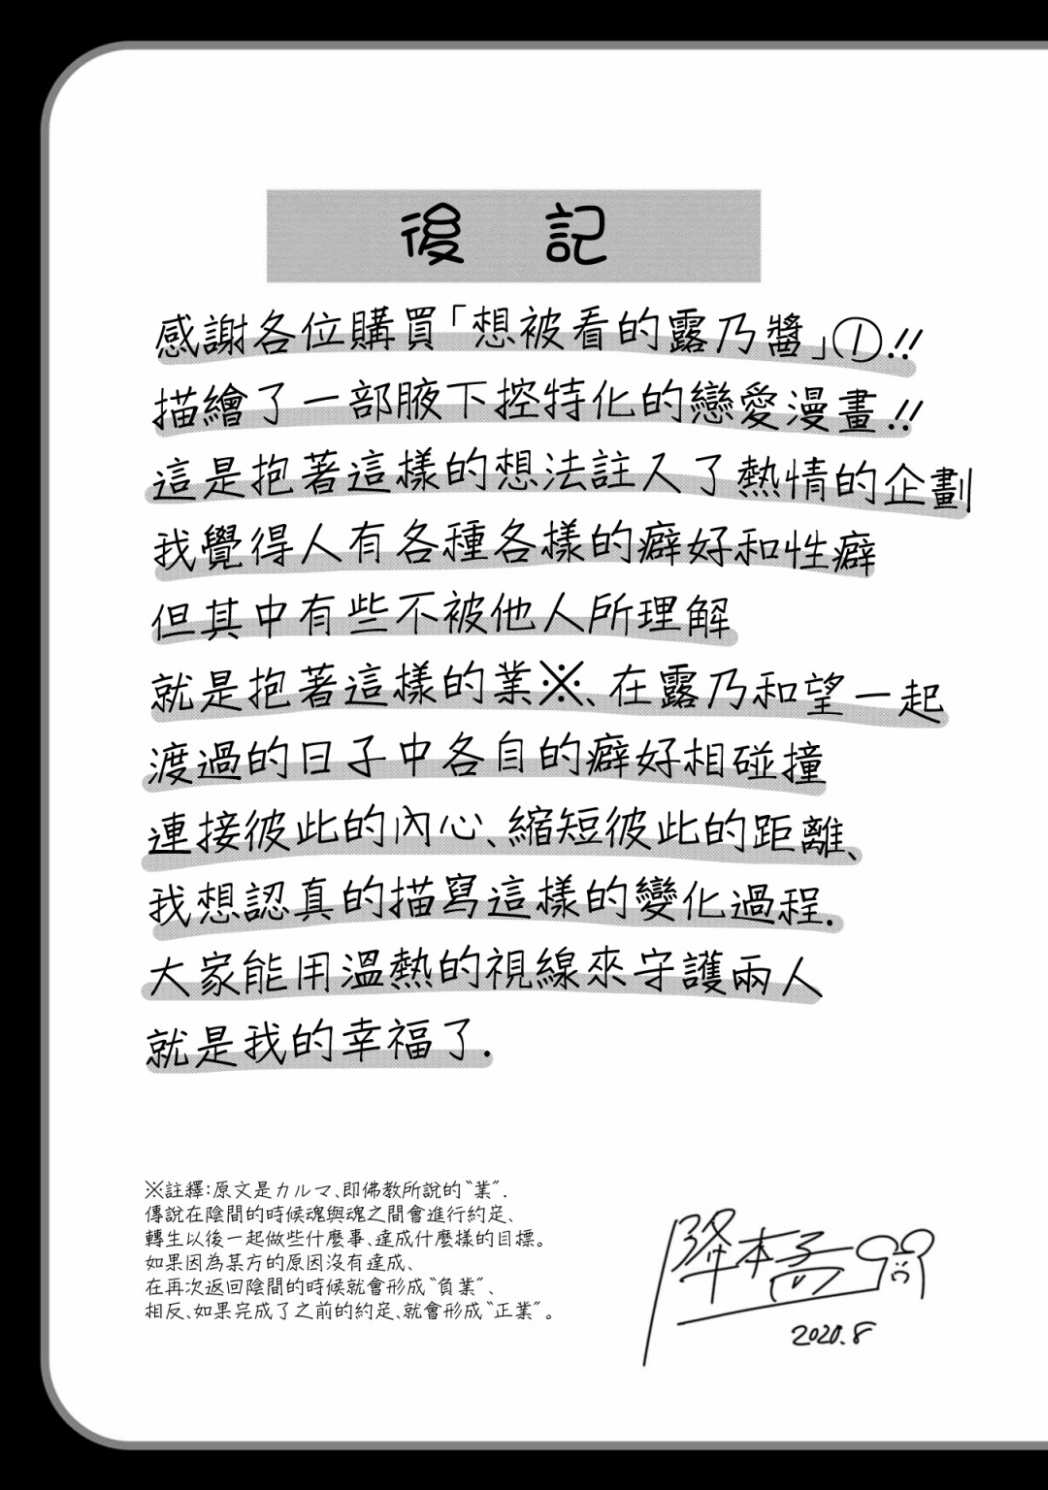 後記
感謝各位購買「想被看的露乃醬」①!!
描繪了一部腋下控特化的戀愛漫畫!!
這是抱著這樣的想法註入了熱情的企劃
我覺得人有各種各樣的癖好和性癖
但其中有些不被他人所理解
就是抱著這樣的業※、在露乃和望一起
渡過的日子中各自的癖好相碰撞
連接彼此的內心、縮短彼此的距離、
我想認真的描寫這樣的變化過程.
大家能用溫熱的視線來守護兩人
就是我的幸福了.
※註釋:原文是カルマ、即佛教所說的“業”.
傳說在陰間的時候魂與魂之間會進行約定、
轉生以後一起做些什麼事、達成什麼樣的目標。
如果因為某方的原因沒有達成、
在再次返回陰間的時候就會形成“負業”、
相反、如果完成了之前的約定、就會形成“正業”。
降本孟
2020.8